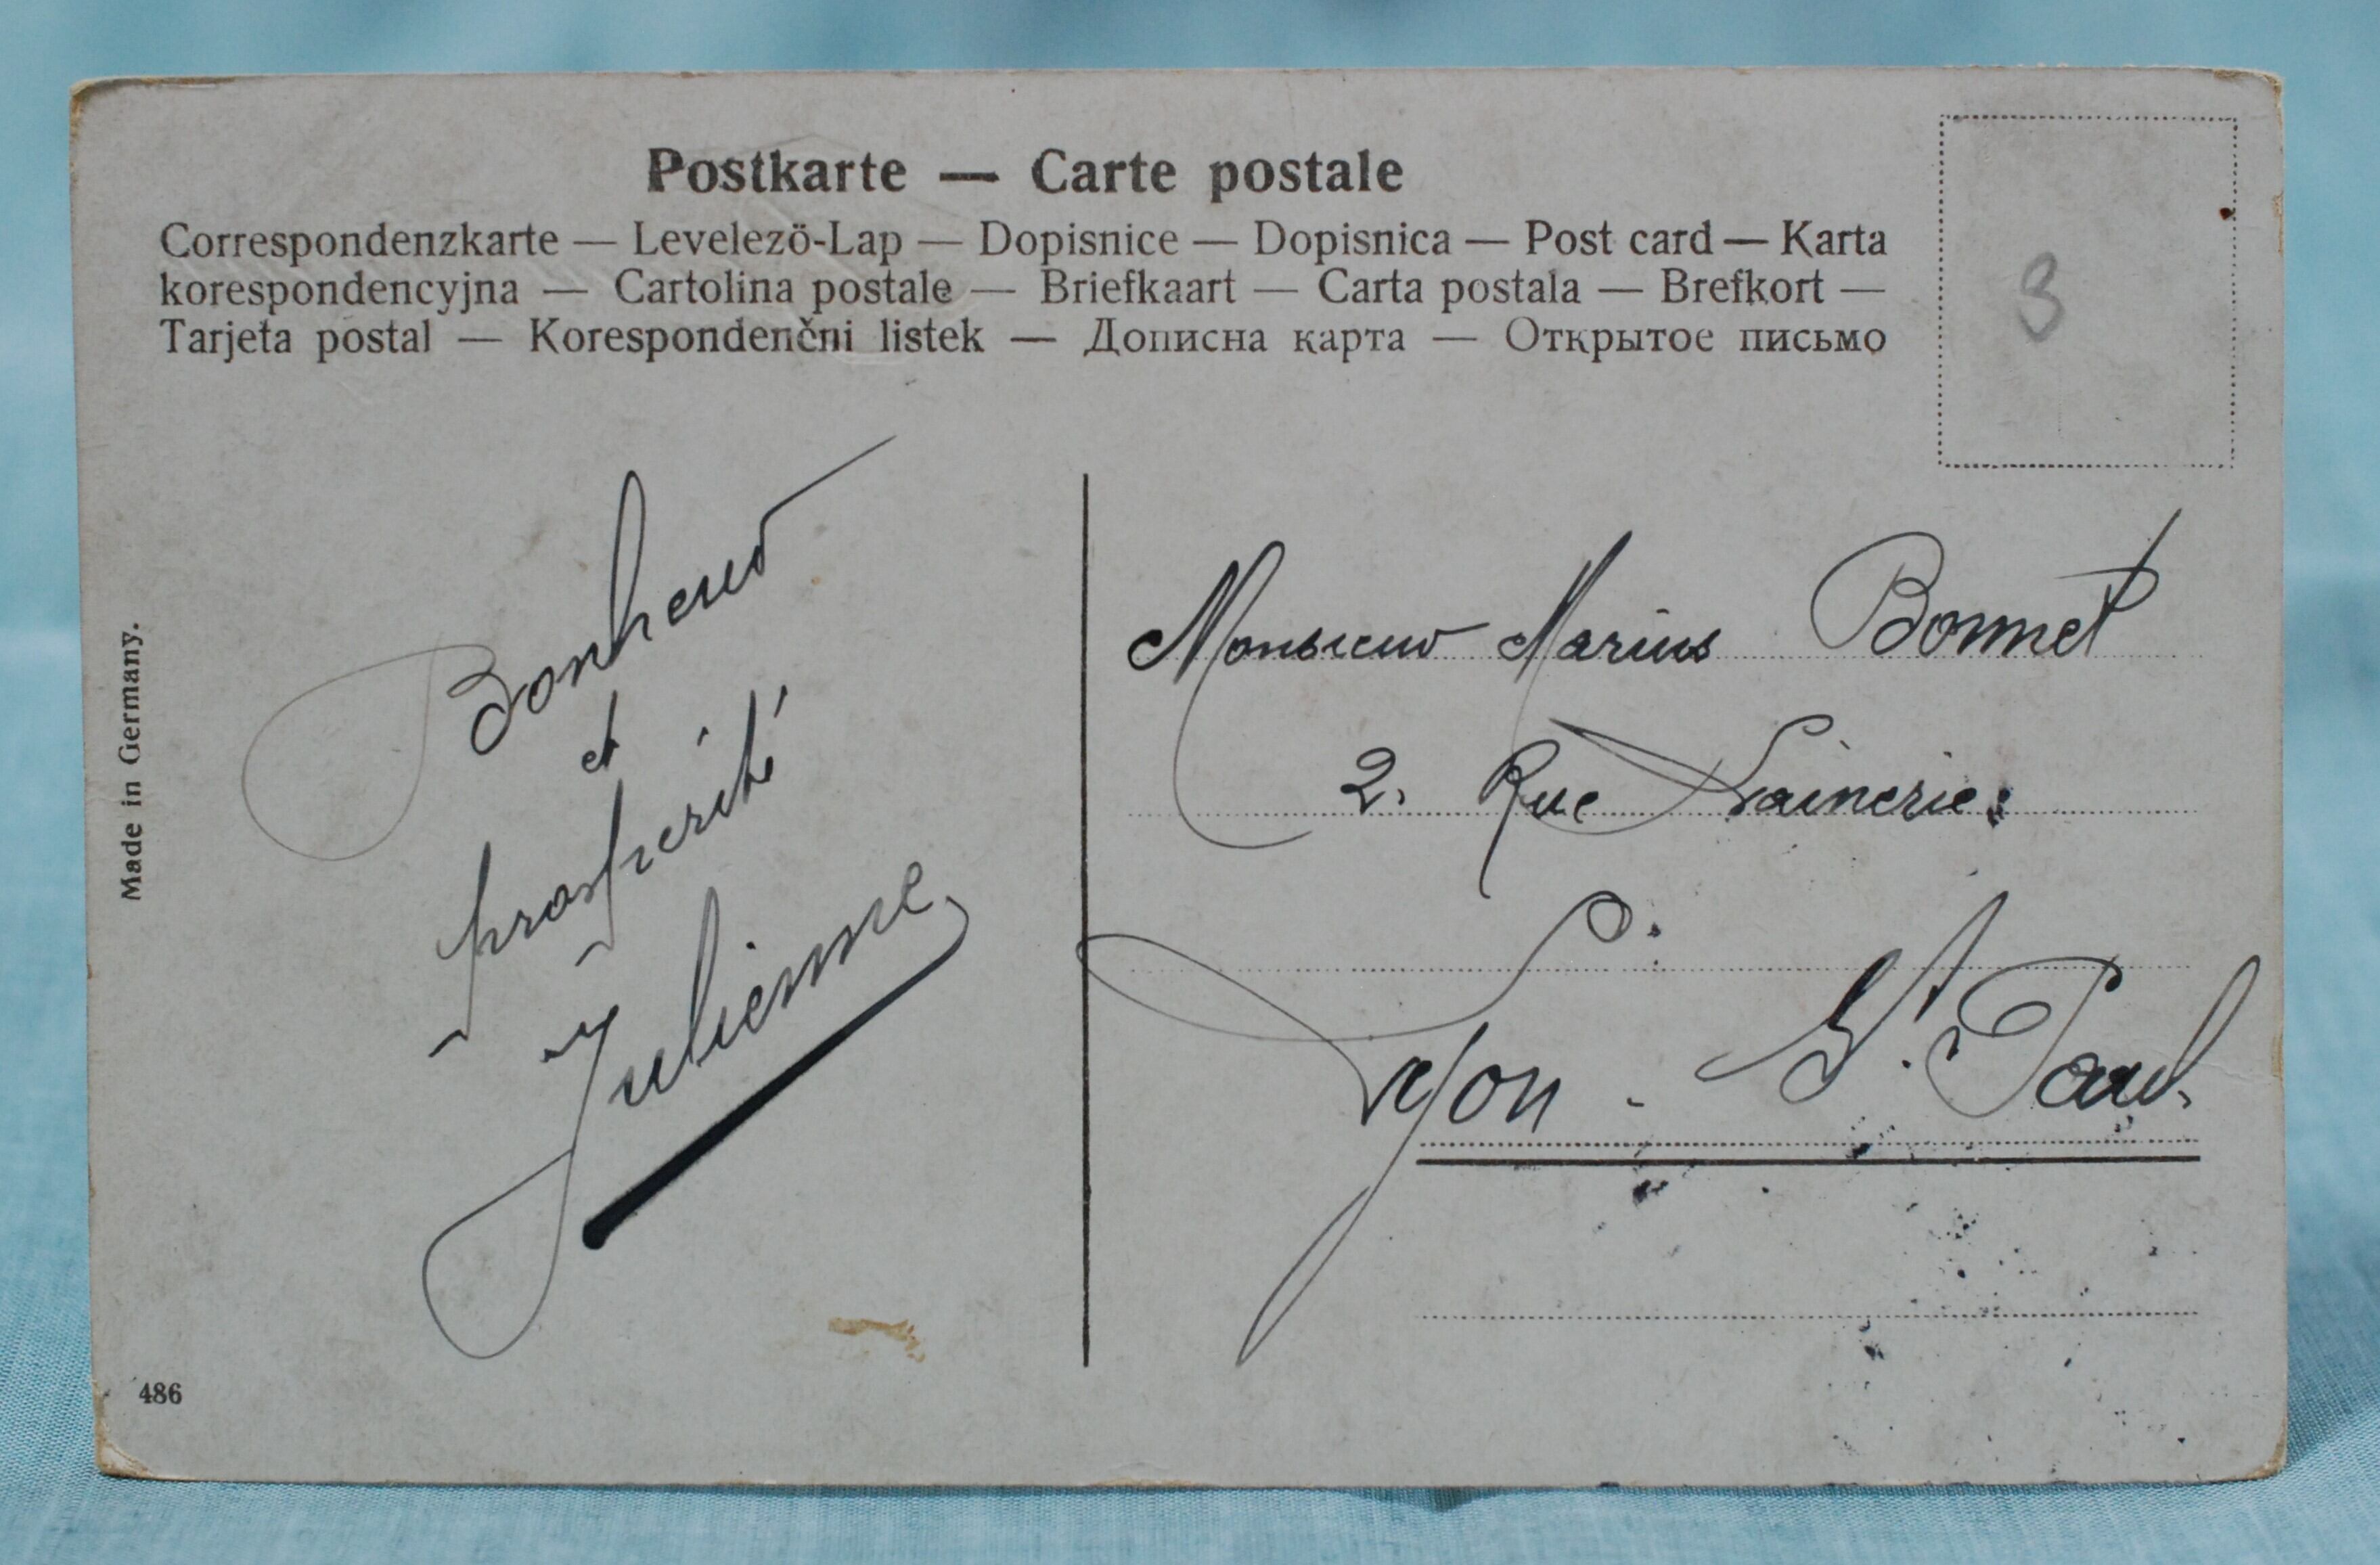 Postkarte — Carte postale
Correspondenzkarte — Levelezö-Lap — Dopisnice — Dopisnica — Post card — Karta
korespondencyjna — Cartolina postale — Briefkaart — Carta postala — Brefkort —
Tarjeta postal — Korespondenčni listek — Дописна карта — Открытое письмо
3
Made in Germany.
486
Bonheur
et
prospérité
Julienne
Monsieur Marius Bonnet
2. Rue Lainerie.
Lyon - St. Paul.